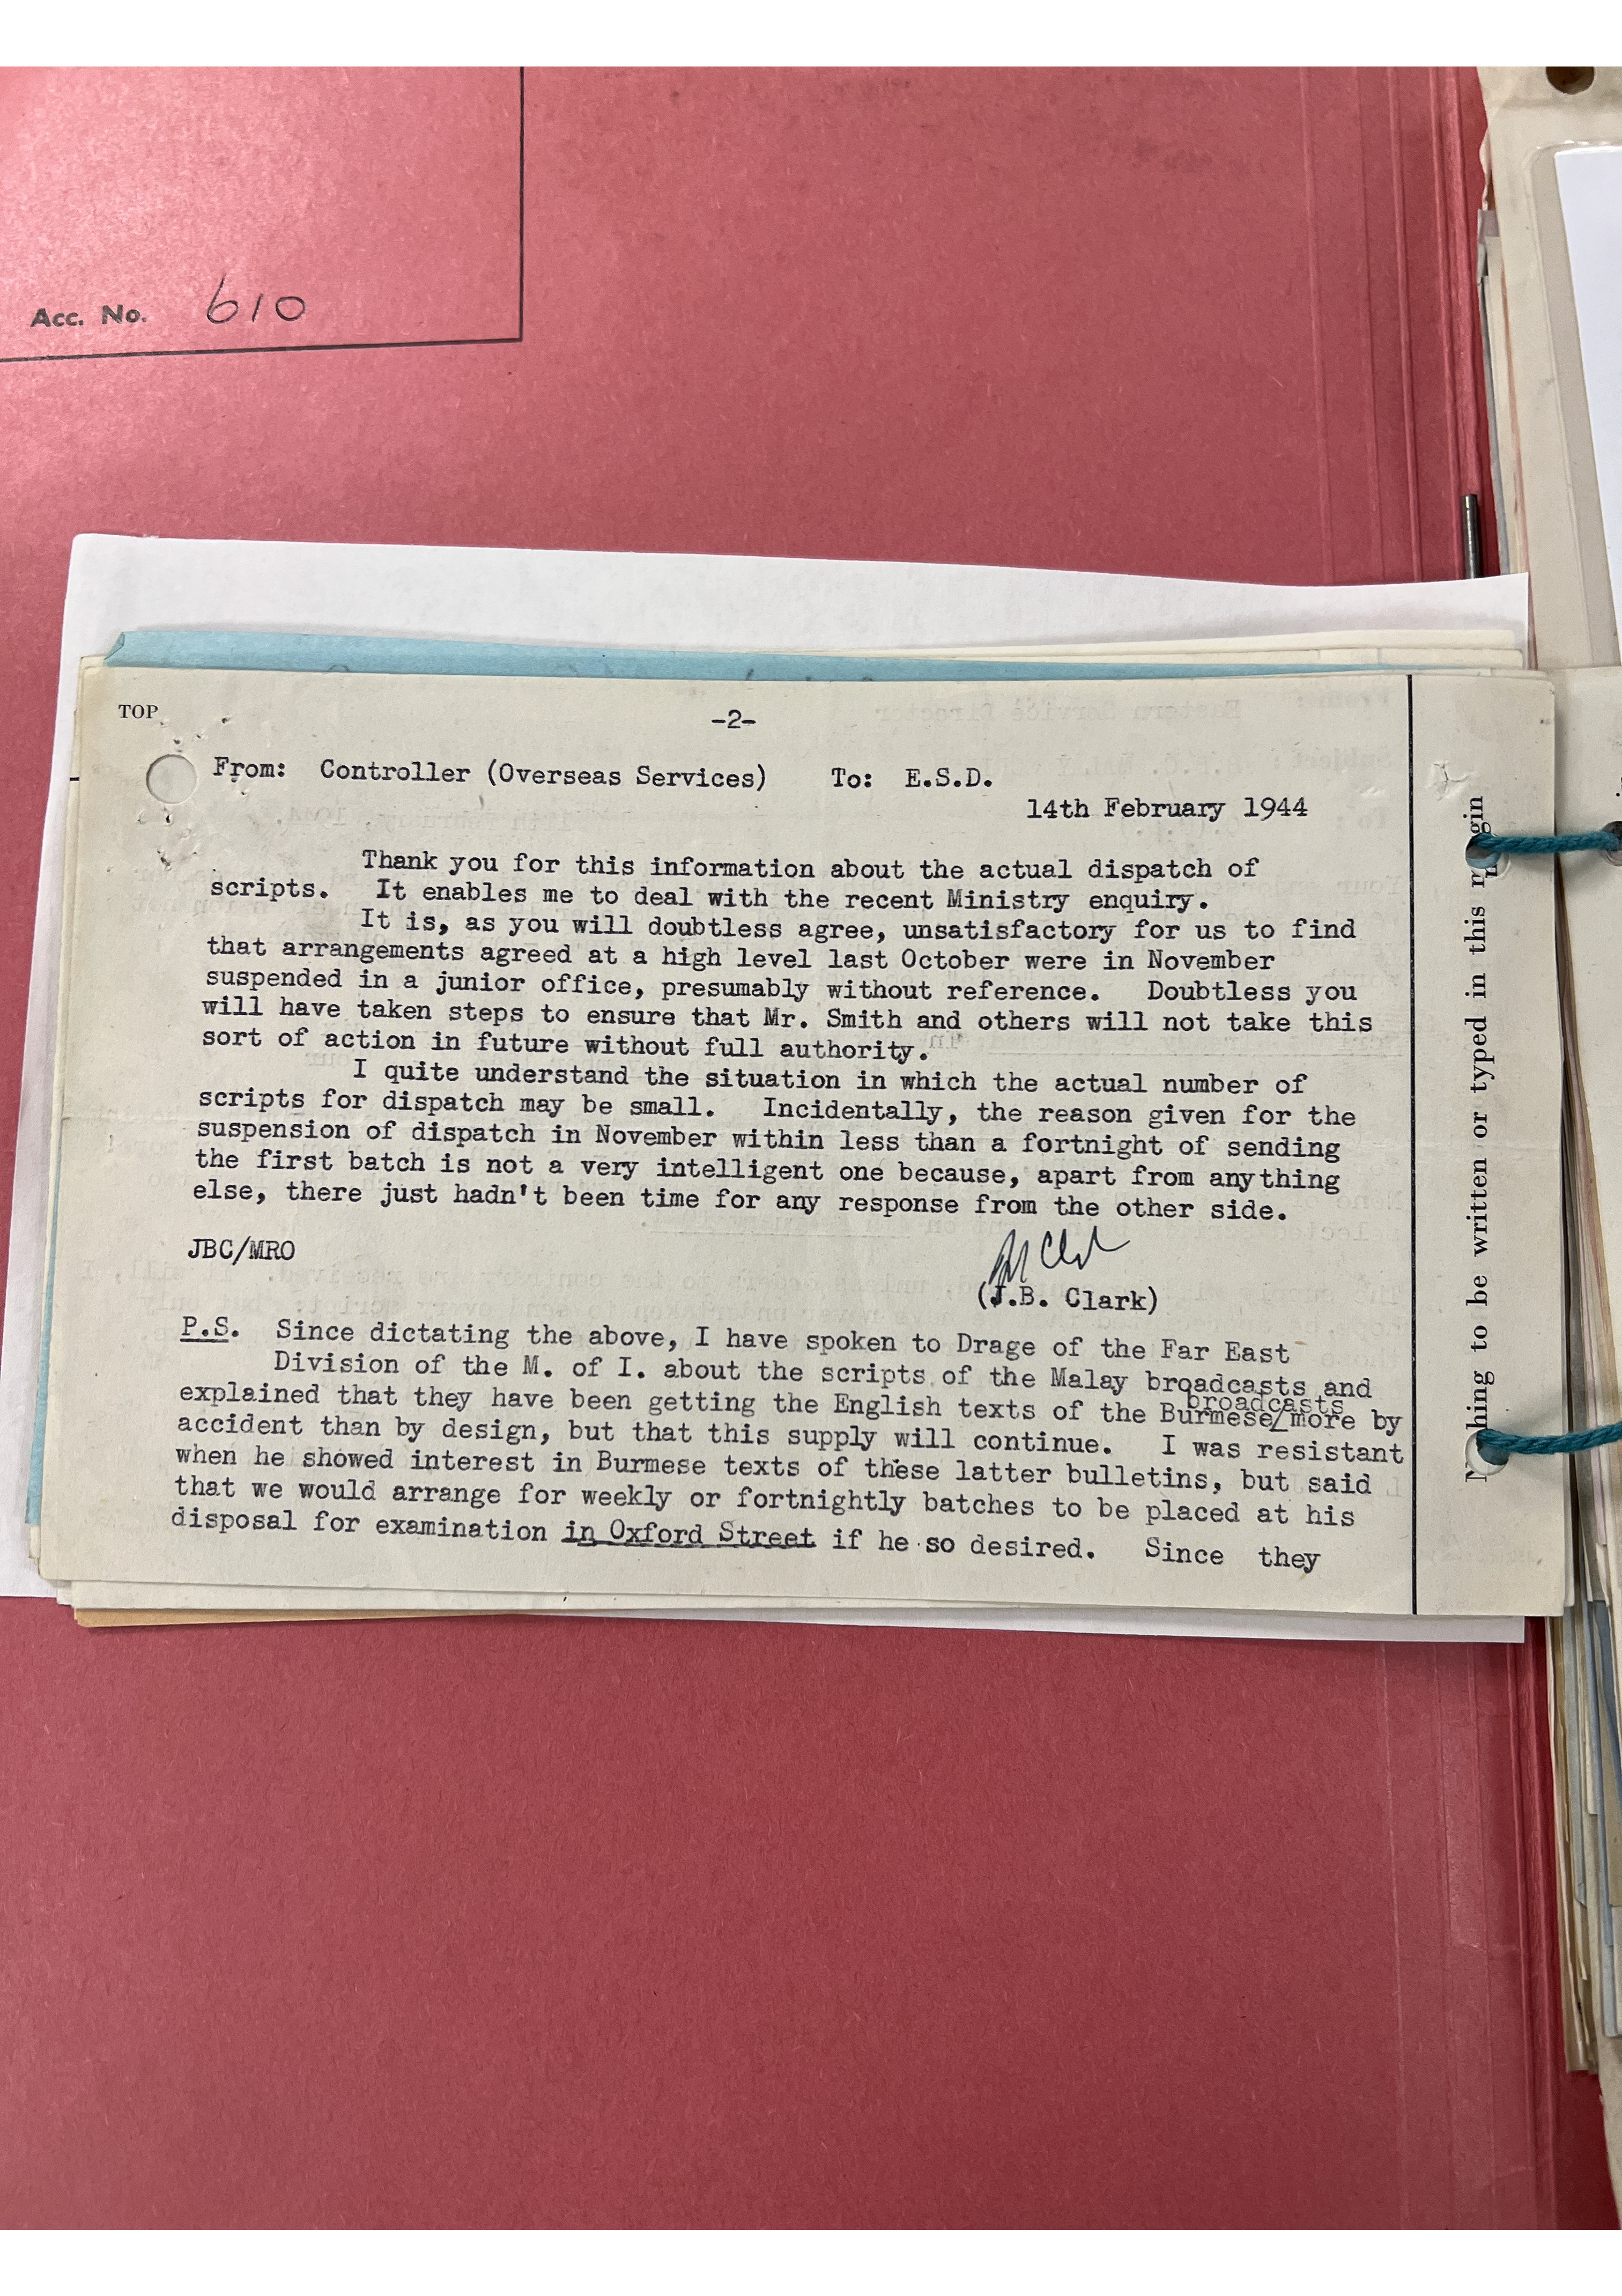 Acc. No. 610
TOP
-2-
From: Controller (Overseas Services) To: E.S.D.
14th February 1944
Thank you for this information about the actual dispatch of
scripts. It enables me to deal with the recent Ministry enquiry.
It is, as you will doubtless agree, unsatisfactory for us to find
that arrangements agreed at a high level last October were in November
suspended in a junior office, presumably without reference. Doubtless you
will have taken steps to ensure that Mr. Smith and others will not take this
sort of action in future without full authority.
I quite understand the situation in which the actual number of
scripts for dispatch may be small. Incidentally, the reason given for the
suspension of dispatch in November within less than a fortnight of sending
the first batch is not a very intelligent one because, apart from anything
else, there just hadn't been time for any response from the other side.
JBC/MRO
(J.B. Clark)
P.S. Since dictating the above, I have spoken to Drage of the Far East
Division of the M. of I. about the scripts of the Malay broadcasts and
broadcasts
explained that they have been getting the English texts of the Burmese/more by
accident than by design, but that this supply will continue. I was resistant
when he showed interest in Burmese texts of these latter bulletins, but said
that we would arrange for weekly or fortnightly batches to be placed at his
disposal for examination in Oxford Street if he so desired. Since they
Nothing to be written or typed in this margin